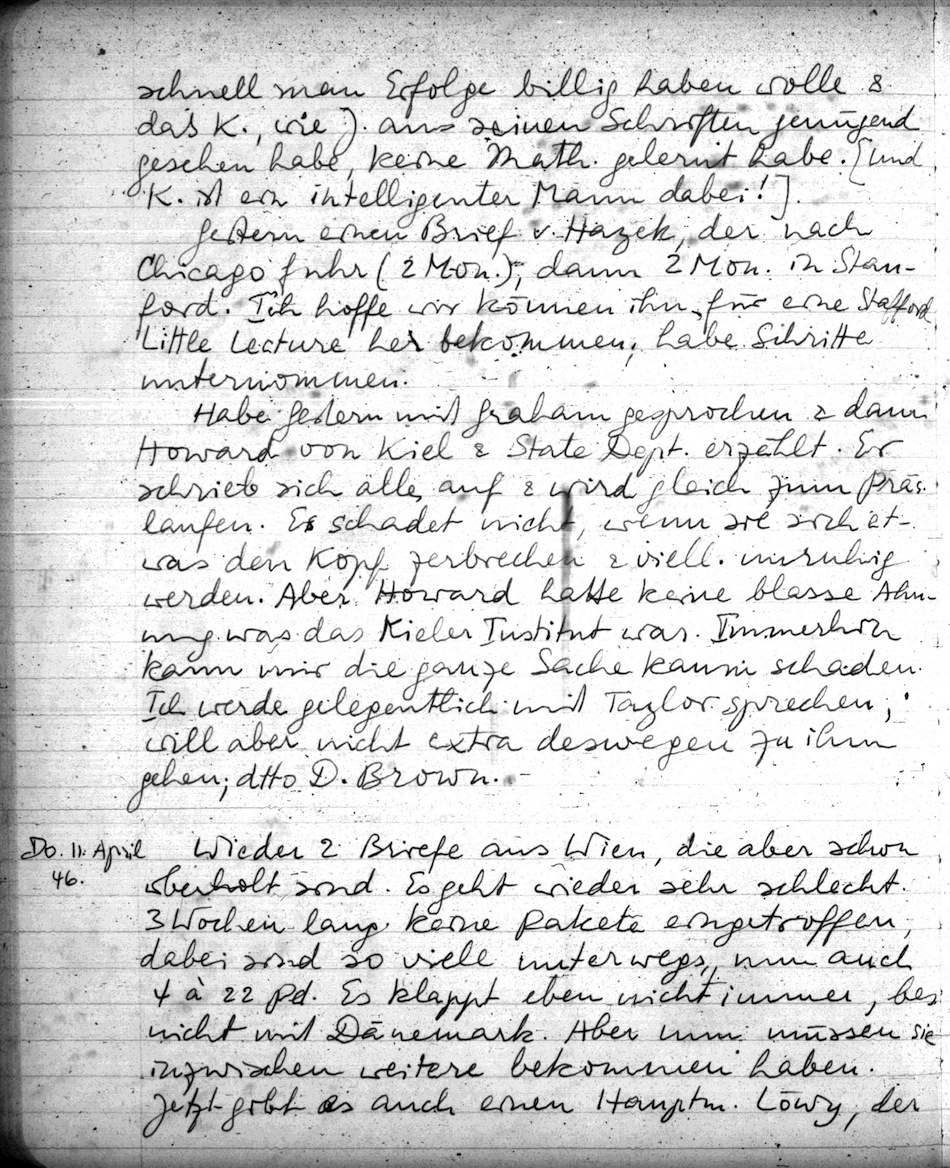 schnell man Erfolge billig haben wolle &
daß K., wie J. aus seinen Schriften genügend
gesehen habe, keine Math. gelernt habe. [und
K. ist ein intelligenter Mann dabei!].
Gestern einen Brief v. Hayek, der nach
Chicago fuhr (2 Mon.), dann 2 Mon. in Stan-
ford. Ich hoffe wir können ihn für eine Stafford
Little Lecture her bekommen; habe Schritte
unternommen.
Habe gestern mit Graham gesprochen & dann
Howard von Kiel & State Dept. erzählt. Er
schrieb sich alles auf & wird gleich zum Präs.
laufen. Es schadet nicht, wenn sie sich et-
was den Kopf zerbrechen & viell. unruhig
werden. Aber Howard hatte keine blasse Ahn-
ung was das Kieler Institut war. Immerhin
kann mir die ganze Sache kaum schaden.
Ich werde gelegentlich mit Taylor sprechen,
will aber nicht extra deswegen zu ihm
gehen; dtto D. Brown. –
Do. 11. April
46.
Wieder 2 Briefe aus Wien, die aber schon
überholt sind. Es geht wieder sehr schlecht.
3 Wochen lang keine Pakete eingetroffen,
dabei sind so viele unterwegs, nun auch
4 à 22 Pd. Es klappt eben nicht immer, bes.
nicht mit Dänemark. Aber nun müssen sie
inzwischen weitere bekommen haben.
Jetzt gibt es auch einen Hauptm. Löwy, der